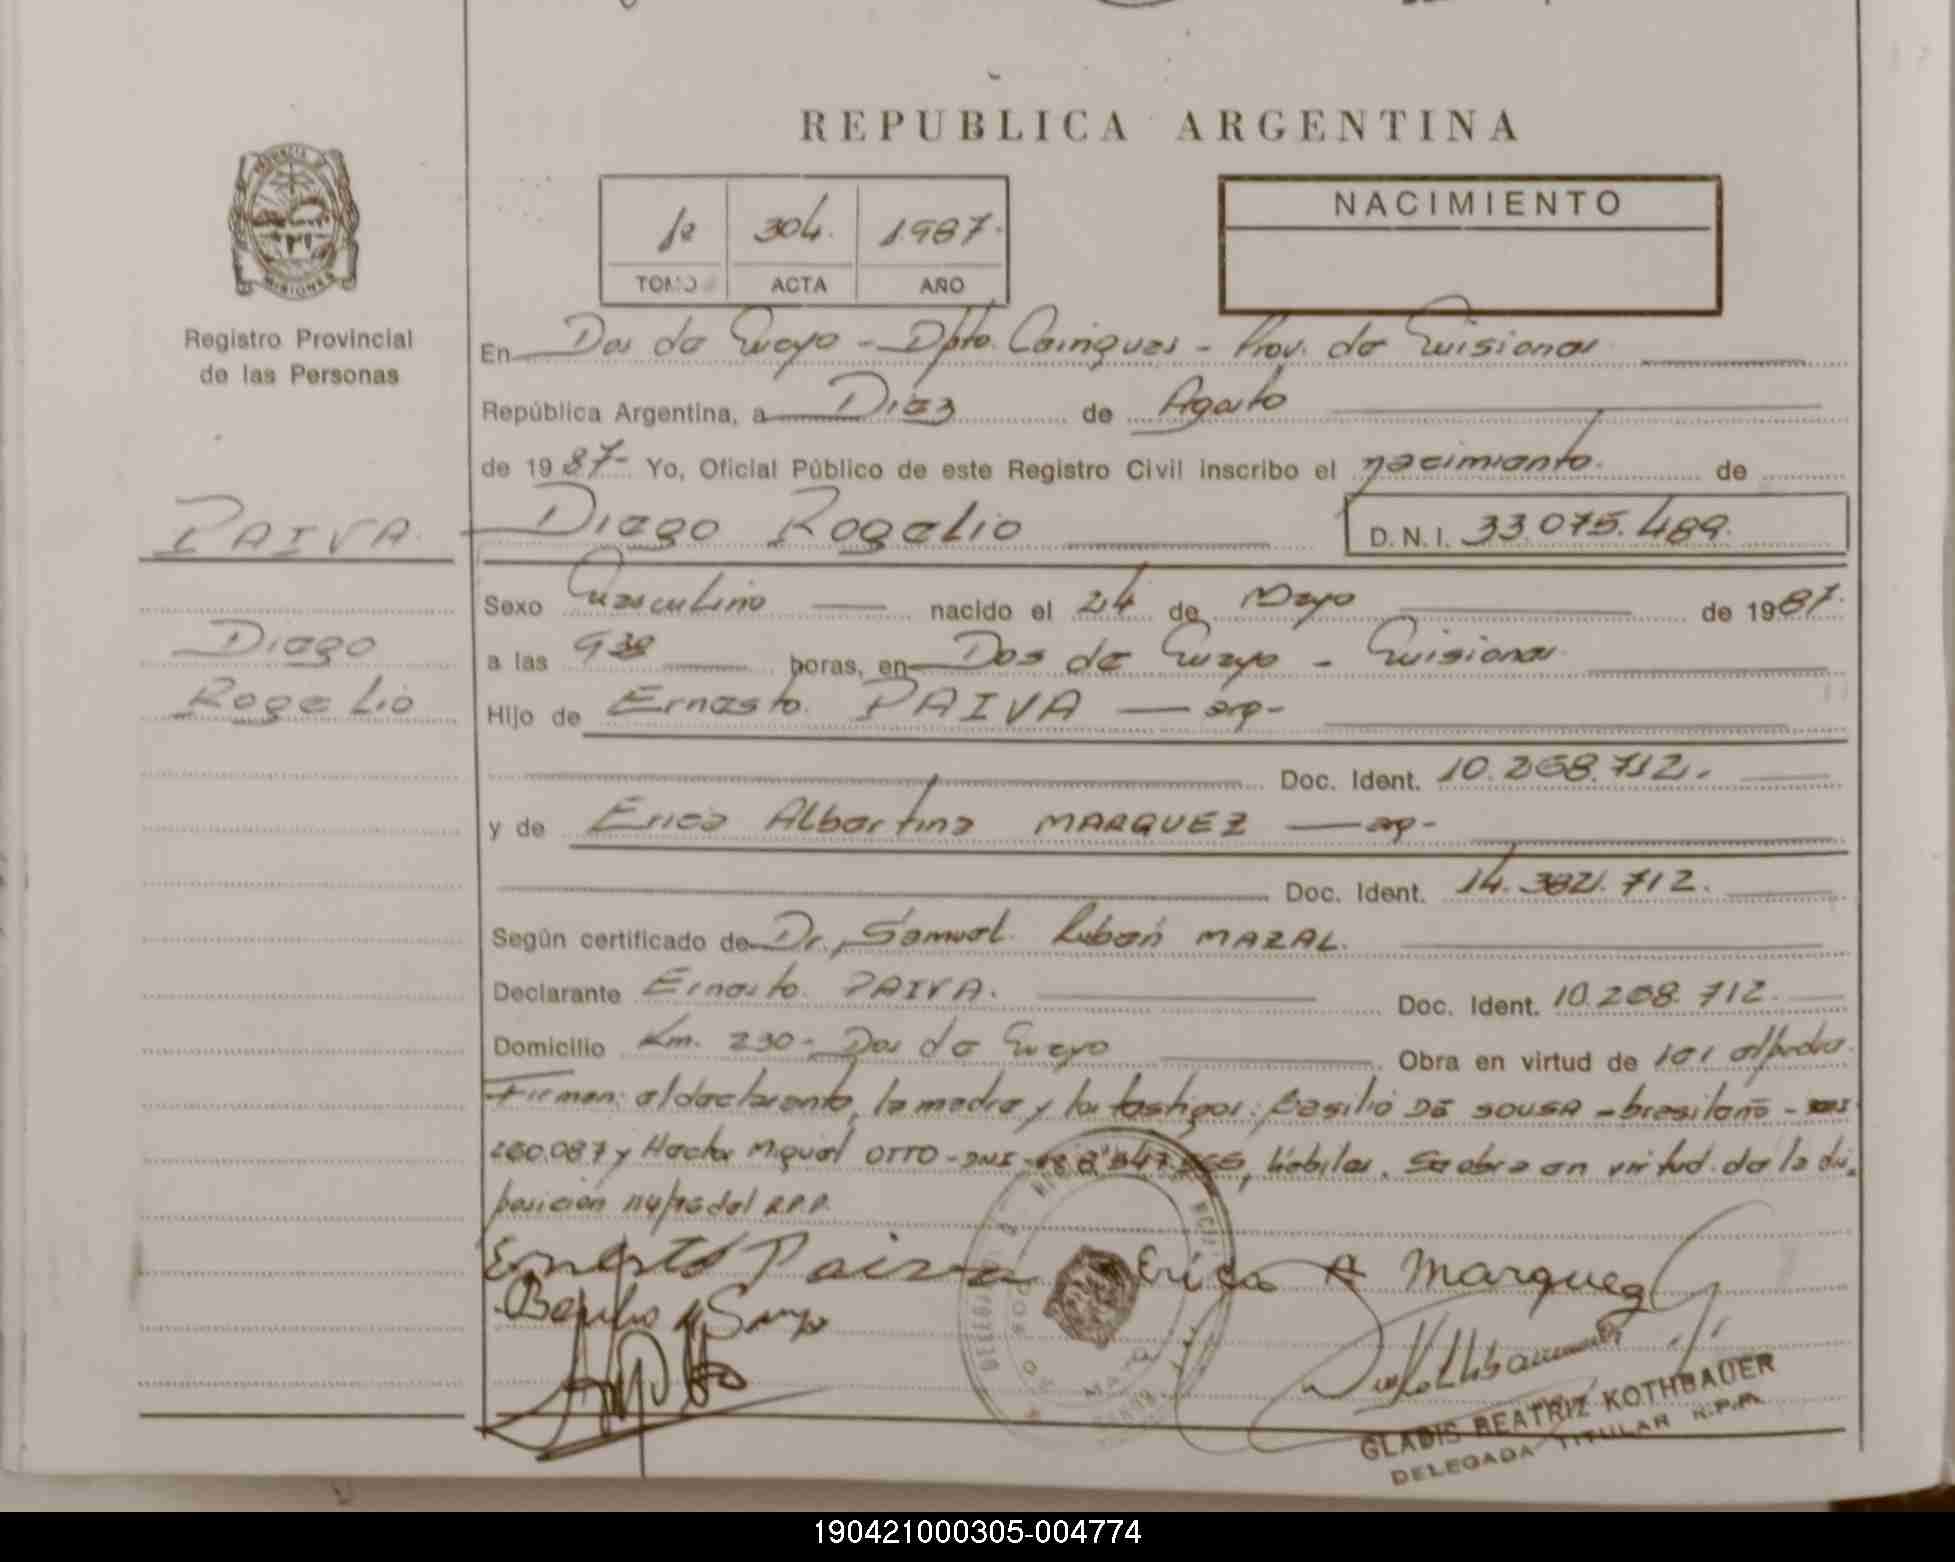 REPUBLICA ARGENTINA
PROVINCIA DE
MISIONES
Registro Provincial
de las Personas
1º 304. 1987.
TOMO ACTA AÑO
NACIMIENTO
En Dos de Mayo - Dpto. Cainguas - Prov. de Misiones
República Argentina, a Diez de Agosto
de 1987- Yo, Oficial Público de este Registro Civil inscribo el nacimiento. de
PAIVA. Diego Rogelio D.N.I. 33.075.489.
Sexo Masculino nacido el 24 de Mayo de 1987.
Diego
a las 930 horas, en Dos de Mayo - Misiones
Rogelio
Hijo de Ernesto. PAIVA — arg-
Doc. Ident. 10.268.712.
y de Erica Albertina MARQUEZ — arg-
Doc. Ident. 14.321.712.
Según certificado de Dr. Samuel Rubén MAZAL.
Declarante Ernesto PAIVA. Doc. Ident. 10.268.712.
Domicilio Km. 230- Dos de Mayo Obra en virtud de los efectos
Firman: el declarante, la madre y los testigos: Basilio DE SOUSA - brasileño -
260.087 y Hector Miguel OTTO - DNI - hábiles. Se obra en virtud de la dis
posición 114/86 del R.P.P.
Ernesto Paiva Erica A Marquez
GLADIS BEATRIZ KOTHBAUER
DELEGADA TITULAR R.P.P.
190421000305-004774